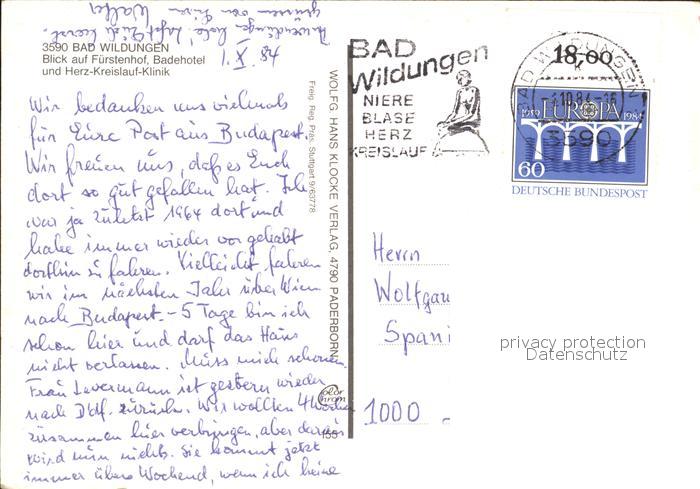 3590 BAD WILDUNGEN
Blick auf Fürstenhof, Badehotel
und Herz-Kreislauf-Klinik
Wir bedanken uns vielmals
für Eure Post aus Budapest.
Wir freuen uns, daß es Euch
dort so gut gefallen hat. Ich
war ja zuletzt 1964 dort und
habe immer wieder vorgehabt
dorthin zu fahren. Vielleicht fahren
wir im nächsten Jahr über Wien
nach Budapest. - 5 Tage bin ich
schon hier und darf das Haus
nicht verlassen. Muss mich schonen.
Frau Levermann ist gestern wieder
nach D'df. zurück. Wir wollten 4 Wochen
zusammen hier verbringen, aber daraus
wird nun nichts. Sie kommt jetzt
immer übers Wochenend, wenn ich keine
Anwendungen habe.
Walter
Freig. Reg. Präs. Stuttgart 9/63778
WOLFG. HANS KLOCKE VERLAG, 4790 PADERBORN
Color
Chrom
155
BAD
Wildungen
NIERE
BLASE
HERZ
KREISLAUF
BAD WILDUNGEN
18,00
3590
1959 EUROPA 1984
60
DEUTSCHE BUNDESPOST
Herrn
Wolfgan
Spani
1000
privacy protection
Datenschutz